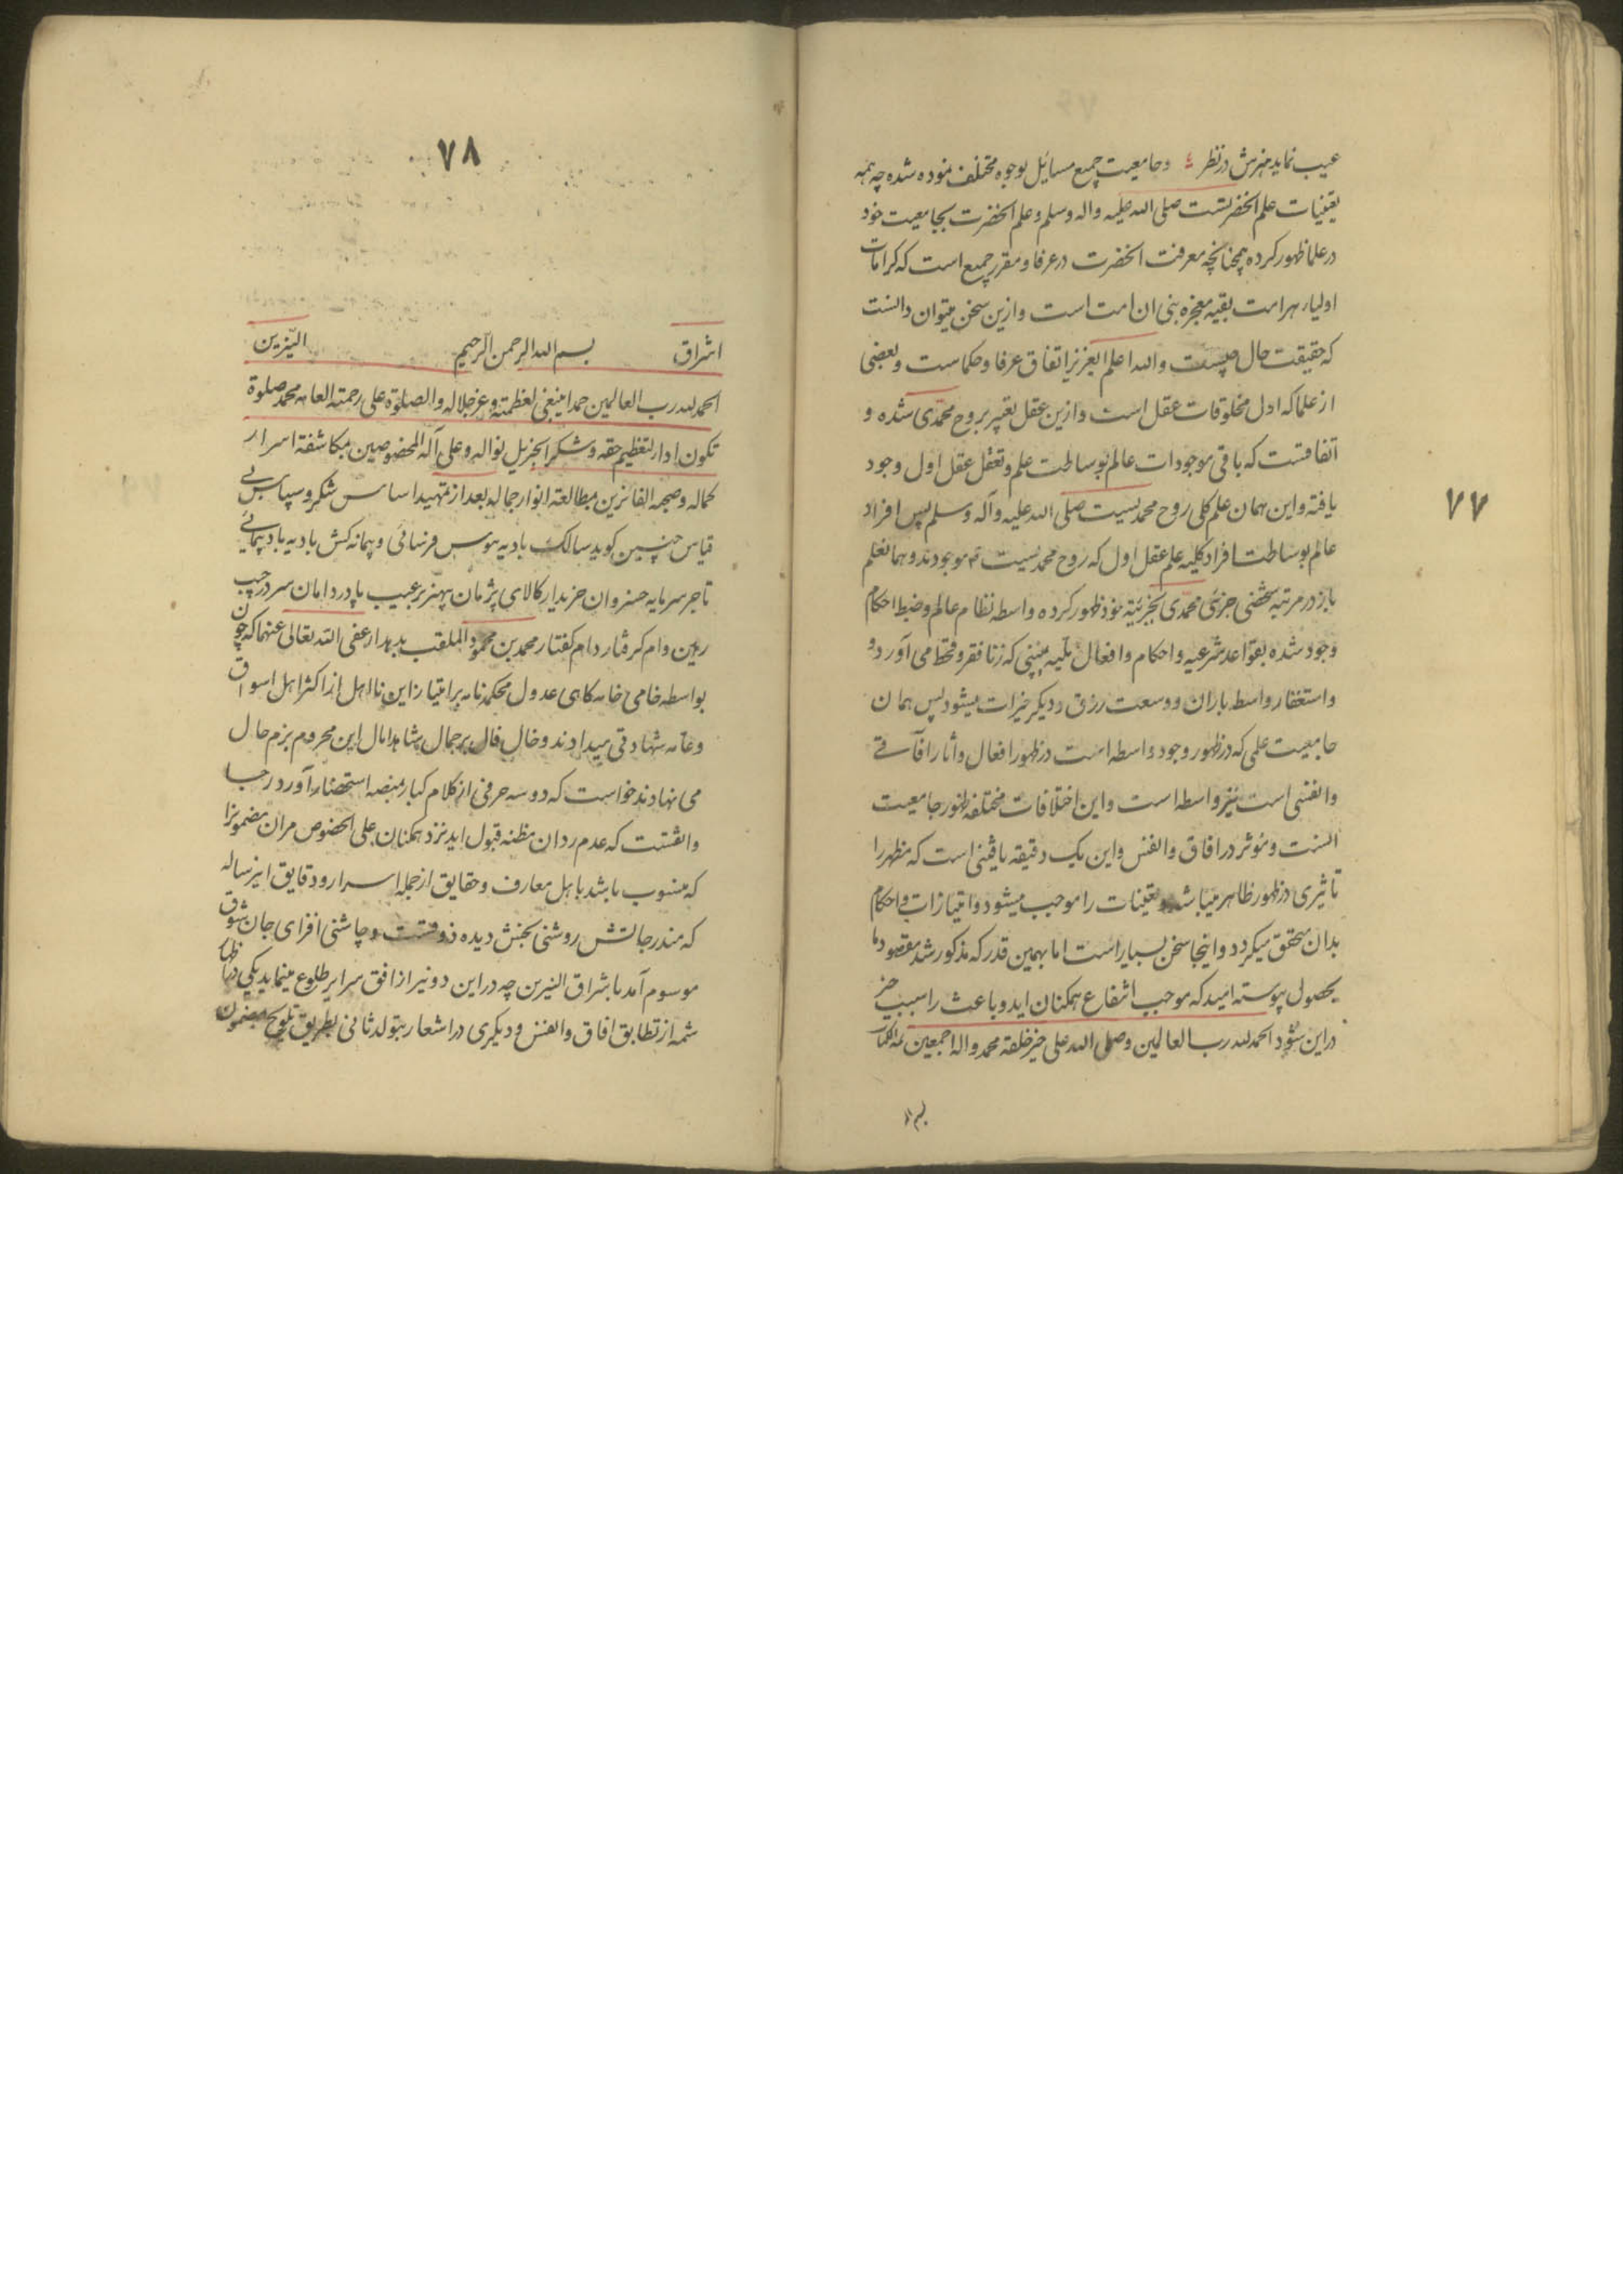 عیب نماید هنرش در نظر ۽ و جامعیت جمیع مسایل بوجوه مختلف نموده شده چه همه
تعینات علم انحضرتست صلی الله علیه واله وسلم و علم انحضرت بجامعیت خود
در علما ظهور کرده همچنانچه معرفت انحضرت در عرفا و مقرر جمیع است که کرامات
اولیاء هر امت بقیه معجزه بنی ان امت است و ازین سخن میتوان دانست
که حقیقت حال چیست والله اعلم ای عزیز اتفاق عرفا و حکماست و بعضی
از علما که اول مخلوقات عقل است و ازین عقل تعبیر بروح محمدی شده و
اتفاقست که باقی موجودات عالم بوساطت علم و تعقل عقل اول وجود
یافته و این همان علم کلی روح محمدیست صلی الله علیه وآله وسلم پس افراد
عالم بوساطت افراد کلیه علم عقل اول که روح محمدیست موجودند و همانعلم
باز در مرتبه شخصی جزئی محمدی بجزئیة خود ظهور کرده واسطه نظام عالم و ضبط احکام
وجود شده بقواعد شرعیه و احکام و افعال ملیه ببینی که زنا فقر و قحط می آورد و
و استغفار واسطه باران و وسعت رزق و دیگر خیرات میشود پس همان
جامعیت علمی که در ظهور وجود واسطه است در ظهور افعال و آثار آفاقی
و انفسی است نیز واسطه است و این اختلافات مختلفه ظهور جامعیت
انست و مؤثر در افاق و انفس و این یک دقیقه یافتنی است که مظهر را
تاثیری در ظهور ظاهر میباشد و تعینات را موجب میشود و امتیازات و احکام
بدان متحقق میکردد و اینجا سخن بسیار است اما بهمین قدر که مذکور شد مقصود ما
بحصول پیوسته امید که موجب انتفاع همکنان اید و باعث را سبب خیر
دراین شود الحمد لله رب العالمین وصلی الله علی خیر خلقه محمد واله اجمعین
بسم الله
۷۷
۷۸
اشراق بسم الله الرحمن الرحیم النیّرین
الحمد لله رب العالمین حمدا ینبغی لعظمته وعز جلاله والصلوة علی رحمته العامه محمد صلوة
تکون اداء لتعظیم حقه وشکرا لجزیل نواله وعلی آله المخصوصین بمکاشفة اسرار
کماله وصحبه الفائزین بمطالعة انوار جماله بعد از تمهید اساس شکر و سپاس بی
قیاس چنین کوید سالک بادیه هوس فرسائی و پیمانه کش بادیه باد پیمائی
تاجر سرمایه خسروان خریدار کالای پژمان بهنر بر عیب پا در دامان سر در جیب
رهین وام کرفتار دام کفتار محمد بن محمود الملقب بدهدار عفی الله تعالی عنهما که چون
بواسطه خامی خامه کاهی عدول محکمه نامه بر امتیاز این نا اهل از اکثر اهل اسواق
و عامه شهادتی میدادند و خال فال بر جمال شاهد امال این محروم بزم حال
می نهادند خواست که دو سه حرفی از کلام کبار بمنصه استحضار آورد رجا
واثقست که عدم رد ان مظنه قبول اید نزد همکنان علی الخصوص مر ان مضمونرا
که منسوب باشد باهل معارف و حقایق از جمله اسرار و دقایق اینرساله
که مندرجاتش روشنی بخش دیده ذوقست و چاشنی افزای جان شوق
موسوم آمد باشراق النیرین چه دراین دو نیر از افق سرایر طلوع مینماید یکی
شمه از تطابق افاق و انفس و دیکری در اشعار بتولد ثانی بطریق تلویح مضمون